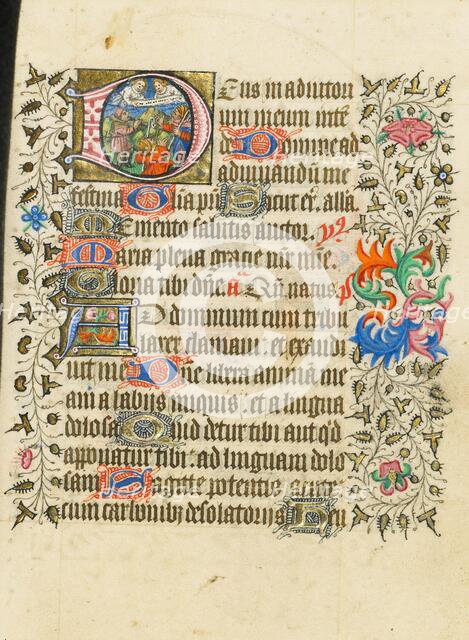 Deus in adiutori
um meum intē
de Domine ad
adiuuandū me
festina Glia pri Sicut er. alla
Memento salutis auctor.
Maria plena gracie mr mie.
Gloria tibi dne. a Qui natus. p
Ad dominum cum tribu
larer clamaui: et exaudi
uit me Domine libera animā me
am a labijs iniquis. et a lingua
dolosa Quid detur tibi aut qd
apponatur tibi: ad linguam dolo
sam Sagitte potentis acute
cum carbonibz desolatoriis Heu
Heritage